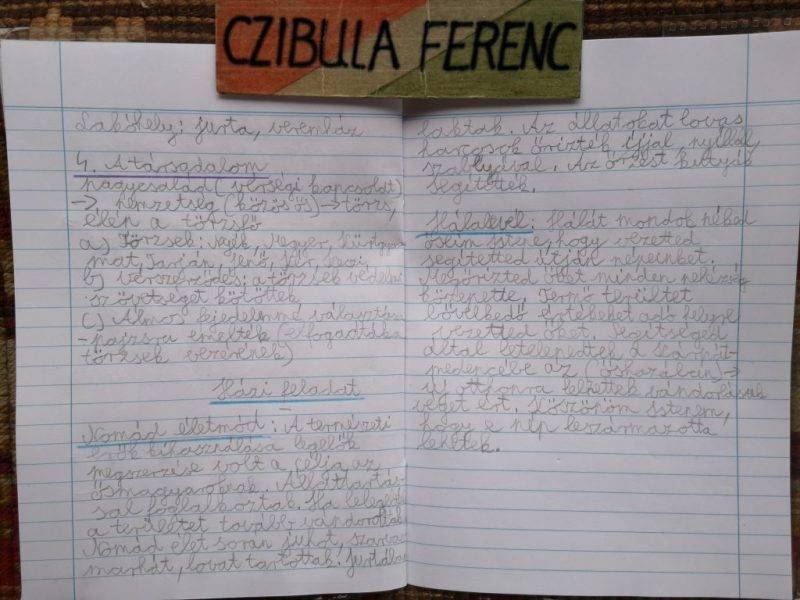 CZIBULA FERENC
Lakóhely: jurta, veremház
4. A társadalom
nagycsalád (vérségi kapcsolat)
→ nemzetség (közös ős) → törzs,
élén a törzsfő
a) Törzsek: Nyék, Megyer, Kürtgyar-
mat, Tarján, Jenő, Kér, Keszi
b) Vérszerződés: a törzsek védelmi
szövetséget kötöttek
c) Álmos fejedelemmé választása
- pajzsra emelték (elfogadták a
törzsek vezérének)
Házi feladat
Nomád életmód: A természeti
erők kihasználása legelők
megszerzése volt a célja az
ősmagyaroknak. Állattartás-
sal foglalkoztak. Ha lelegelték
a területet tovább vándoroltak.
Nomád élet során juhot, szarvas-
marhát, lovat tartottak. Jurtában
laktak. Az állatokat lovas
harcosok őrizték íjjal, nyíllal,
szablyával. Az őrzést kutyák
segítették.
Hálalevél: Hálát mondok néked
őseim Istene, hogy vezetted
segítetted útján népeinket.
Megőrizted őket minden nehézség
közepette. Termő területet
bővelkedő értékeket adó helyre
vezetted őket. Segítséged
által letelepedtek a Kárpát-
medencébe az (őshazában) →
új otthonra lelhettek vándorlásuk
véget ért. Köszönöm Istenem,
hogy e nép leszármazotta
lehetek.